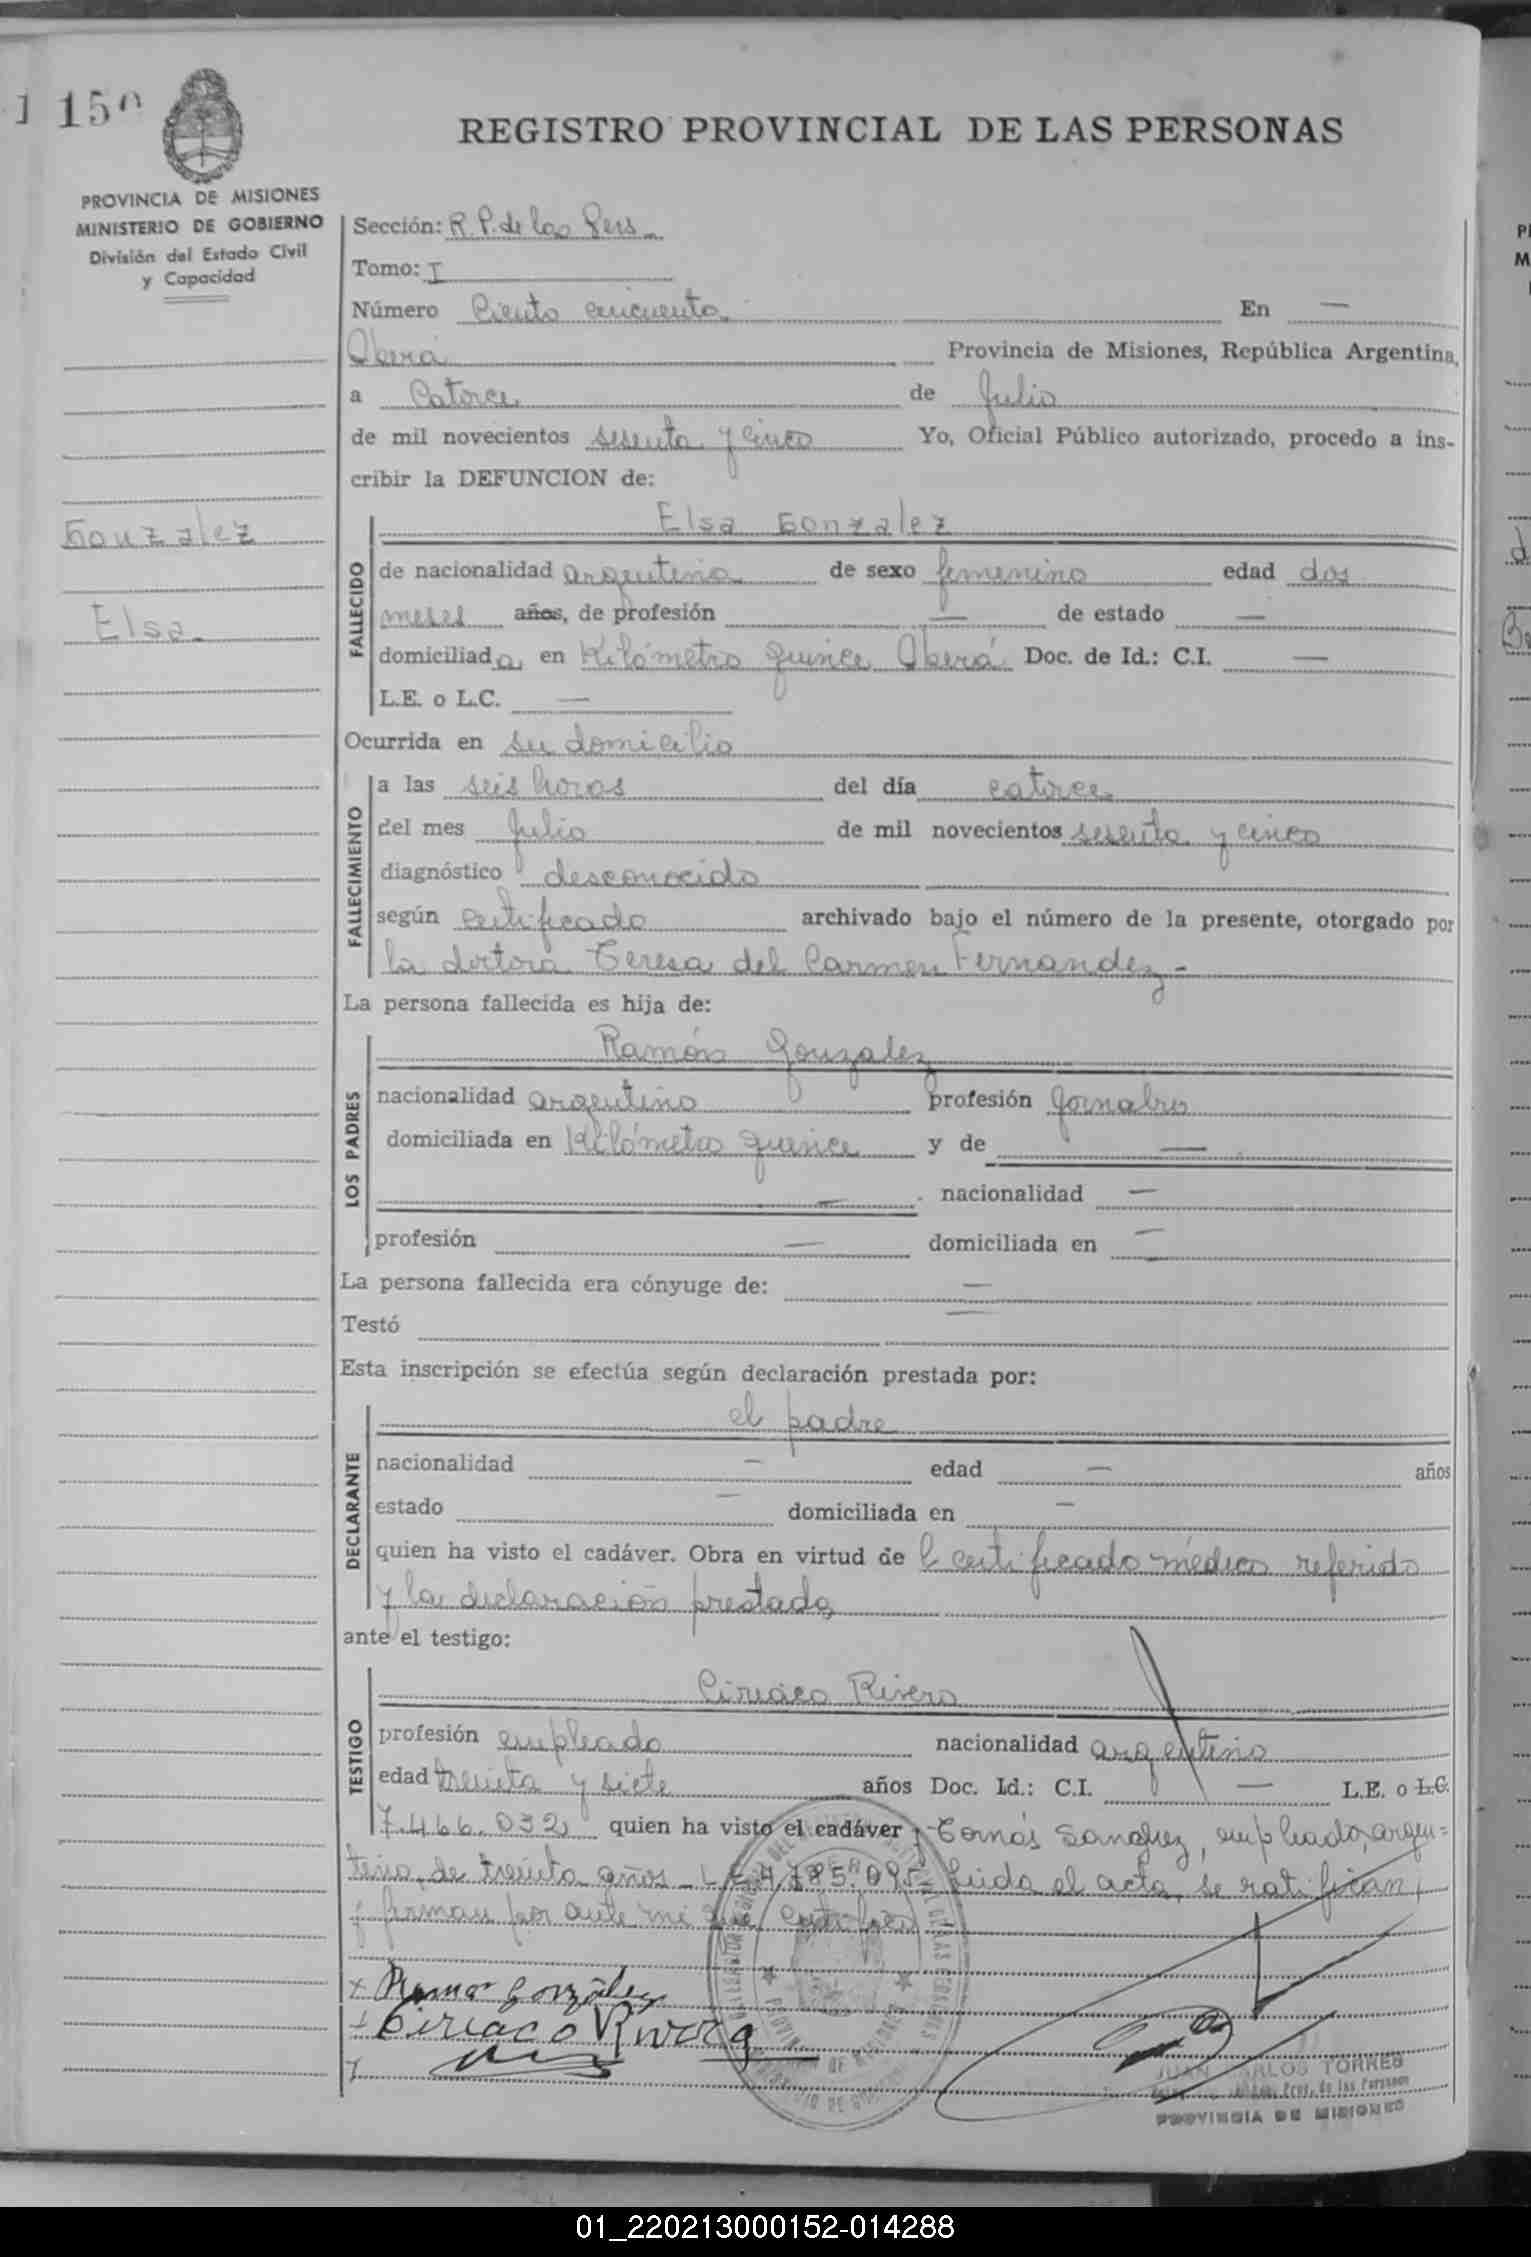 1 150
REGISTRO PROVINCIAL DE LAS PERSONAS
PROVINCIA DE MISIONES
MINISTERIO DE GOBIERNO
División del Estado Civil
y Capacidad
Gonzalez
Elsa
Sección: R. P. de las Pers.
Tomo: I
Número Ciento cincuenta En —
Oberá Provincia de Misiones, República Argentina,
a Catorce de Julio
de mil novecientos sesenta y cinco Yo, Oficial Público autorizado, procedo a ins-
cribir la DEFUNCION de:
Elsa Gonzalez
FALLECIDO
de nacionalidad argentina de sexo femenino edad dos
meses años, de profesión — de estado —
domiciliada en Kilómetro quince Oberá Doc. de Id.: C.I. —
L.E. o L.C. —
Ocurrida en su domicilio
FALLECIMIENTO
a las seis horas del día catorce
del mes Julio de mil novecientos sesenta y cinco
diagnóstico desconocido
según certificado archivado bajo el número de la presente, otorgado por
la doctora Teresa del Carmen Fernandez -
La persona fallecida es hija de:
LOS PADRES
Ramón Gonzalez
nacionalidad argentino profesión jornalero
domiciliada en Kilómetro quince y de —
— nacionalidad —
profesión — domiciliada en —
La persona fallecida era cónyuge de: —
Testó —
Esta inscripción se efectúa según declaración prestada por:
DECLARANTE
el padre
nacionalidad — edad — años
estado — domiciliada en —
quien ha visto el cadáver. Obra en virtud de l certificado médico referido
y la declaración prestada
ante el testigo:
TESTIGO
Ciriaco Rivero
profesión empleado nacionalidad argentino
edad treinta y siete años Doc. Id.: C.I. — L.E. o L.C.
7.466.032 quien ha visto el cadáver y Tomás Sanchez, empleado, argen=
tino, de treinta años - L E 4.785.095 Leida el acta, se ratifican,
y firman por ante mi que certifico
x Ramon González
+ Ciriaco Rivero
JUAN CARLOS TORRES
Prov. de las Personas
PROVINCIA DE MISIONES
01_220213000152-014288